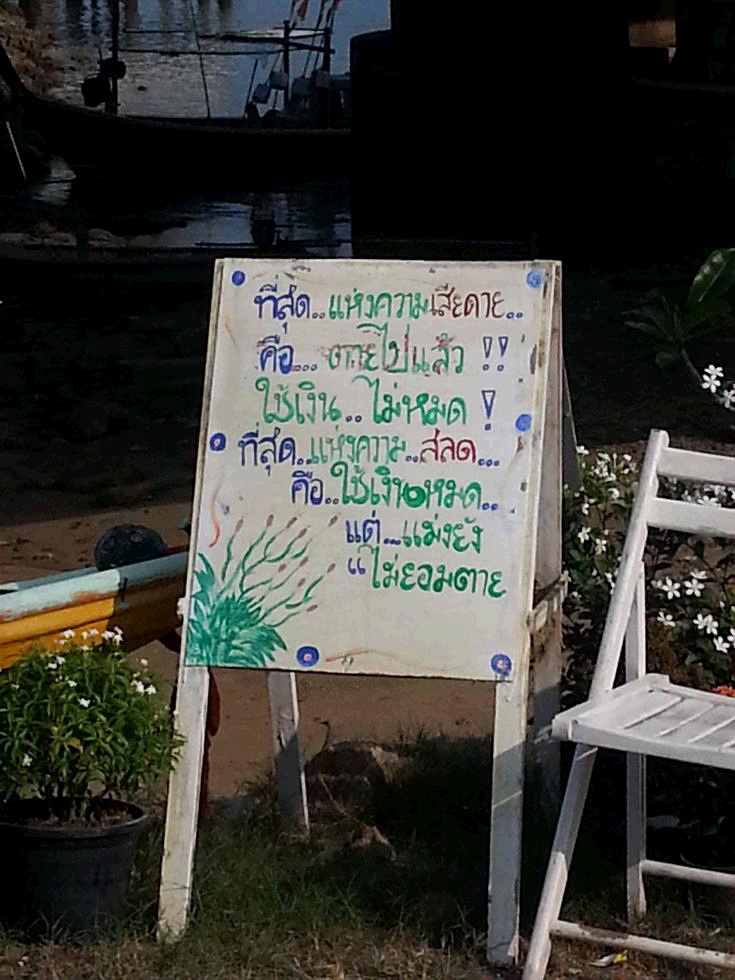 ที่สุด..แห่งความเสียดาย..
คือ... ตายไปแล้ว !!
ใช้เงิน..ไม่หมด !
ที่สุด..แห่งความ..สลด...
คือ..ใช้เงินหมด..
แต่...แม่งยัง
"ไม่ยอมตาย